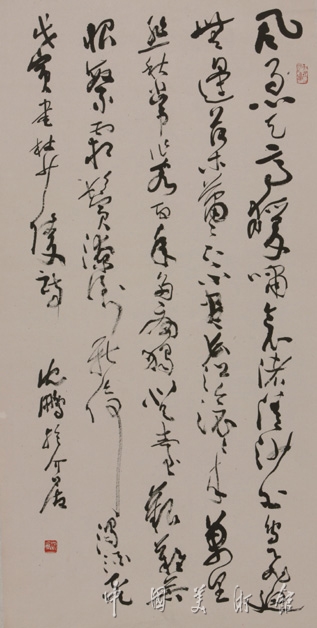 風急天高猨嘯哀渚清沙白鳥飛迴
無邊落木蕭々下不盡長江滚々来萬里
悲秋常作客百年多病獨登臺艱難苦
恨繁霜鬢潦倒新停濁酒杯
戊寅書杜少陵詩 沈鹏於介居
中國美術館